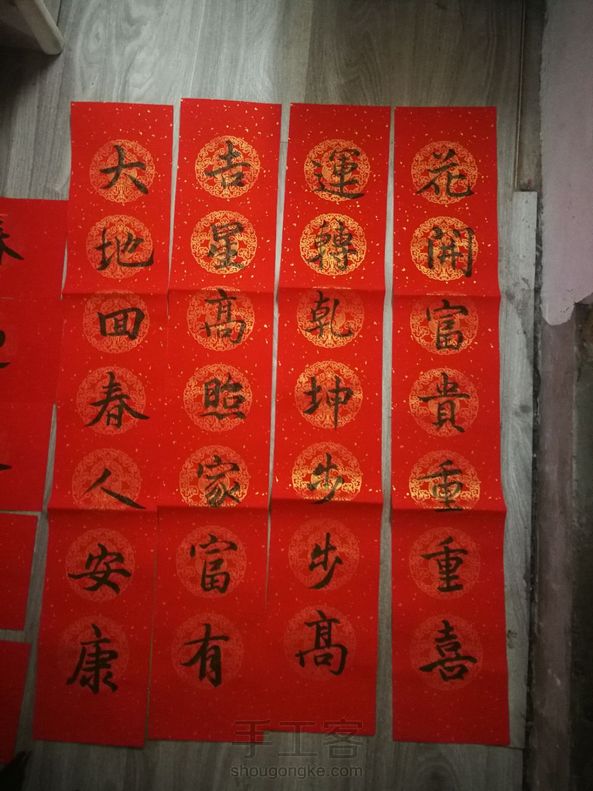 花開富貴重重喜
運轉乾坤步步高
吉星高照家富有
大地回春人安康
手工客
shougongke.com